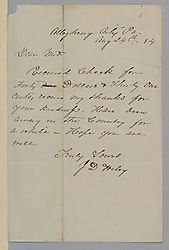 Allegheny City Pa
Aug 24th 84
Dear Friend
Received Check for
Forty Dollars & Thirty One
Cents, receive my thanks for
your kindness. Have been
away in the Country for
a while - Hope you are
well
Truly Yours
J D